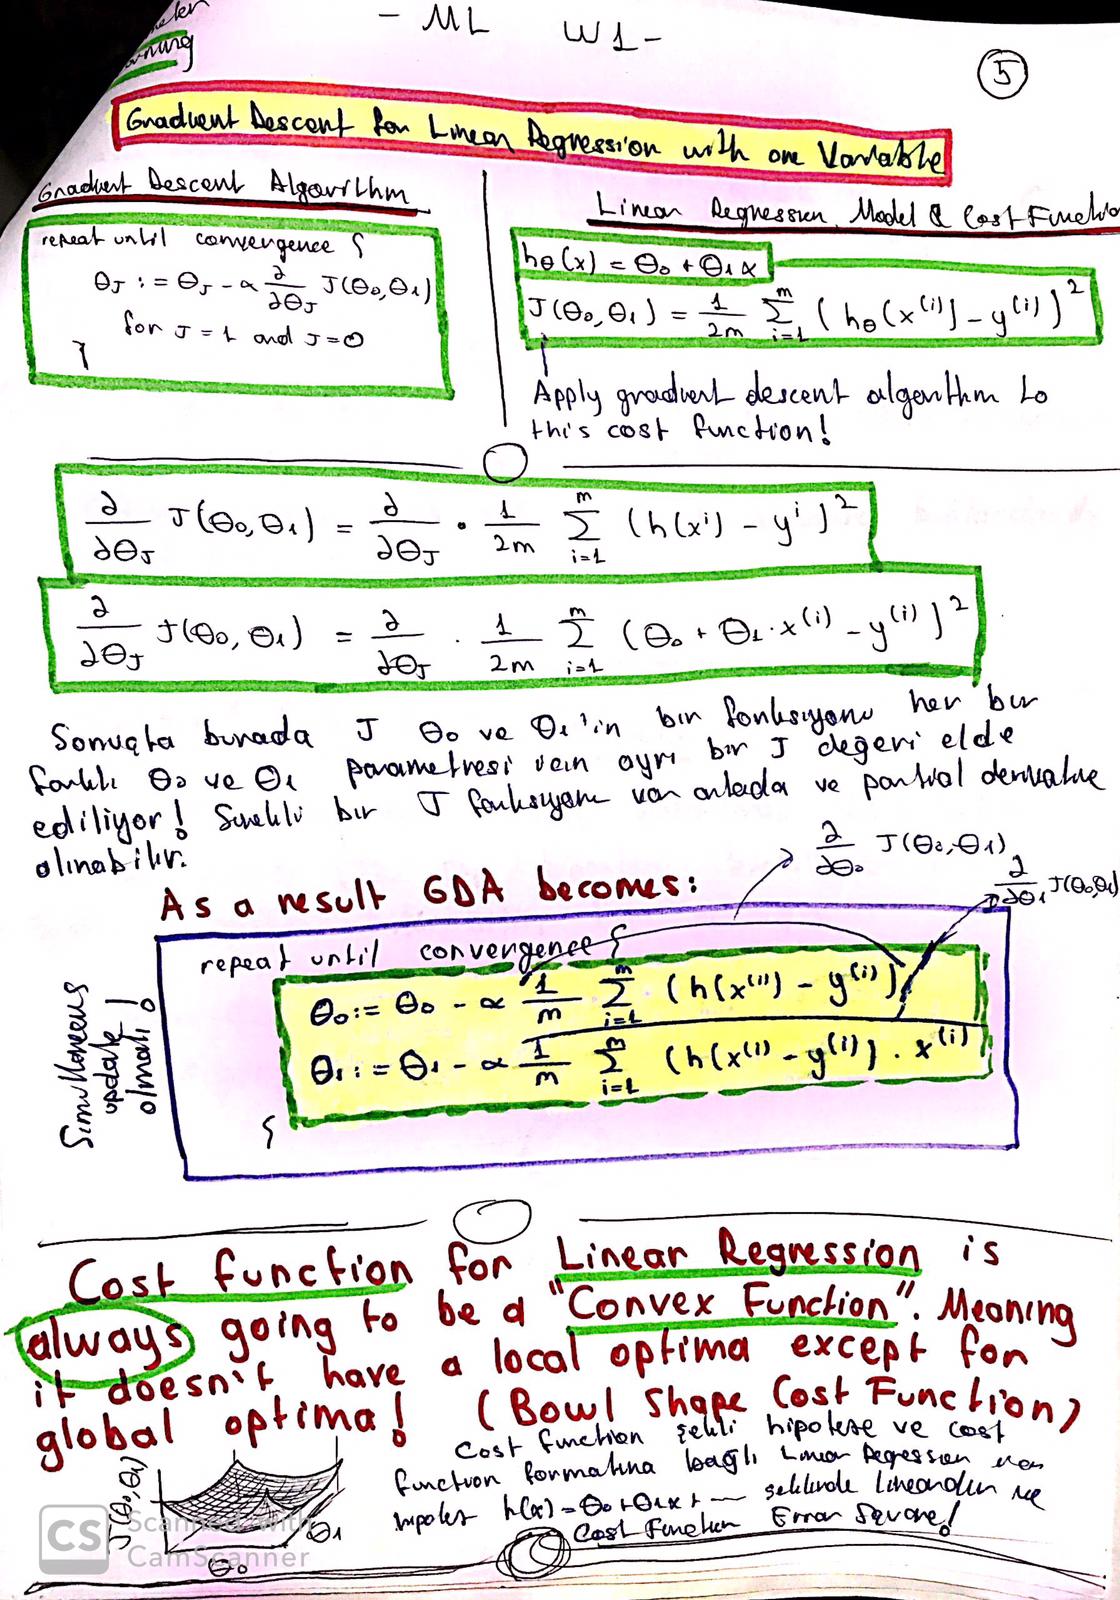 - ML W1 -
5
Gradient Descent for Linear Regression with one Variable
Gradient Descent Algorithm
repeat until convergence {
θJ := θJ - α ∂/∂θJ J(θ0,θ1)
for J = 1 and J = 0
}
Linear Regression Model & Cost Functio
hθ(x) = θ0 + θ1x
J(θ0,θ1) = 1/2m Σ_{i=1}^{m} (hθ(x^(i)) - y^(i))^2
Apply gradient descent algorithm to
this cost function!
∂/∂θJ J(θ0,θ1) = ∂/∂θJ · 1/2m Σ_{i=1}^{m} (h(x^i) - y^i)^2
∂/∂θJ J(θ0,θ1) = ∂/∂θJ · 1/2m Σ_{i=1}^{m} (θ0 + θ1·x^(i) - y^(i))^2
Sonuçta burada J θ0 ve θ1'in bir fonksiyonu her bir
farklı θ0 ve θ1 parametresi için ayrı bir J değeri elde
ediliyor! Sürekli bir J fonksiyonu var ortada ve partial derivative
alınabilir.
∂/∂θ0 J(θ0,θ1)
∂/∂θ1 J(θ0,θ1)
As a result GDA becomes:
repeat until convergence {
θ0 := θ0 - α 1/m Σ_{i=1}^{m} (h(x^(i)) - y^(i))
θ1 := θ1 - α 1/m Σ_{i=1}^{m} (h(x^(i) - y^(i)) · x^(i)
}
Simultaneous
update
olmalı!
Cost function for Linear Regression is
always going to be a "Convex Function". Meaning
it doesn't have a local optima except for
global optima! (Bowl Shape Cost Function)
Cost function şekli hipoteze ve cost
function formatına bağlı Linear Regression
h(x) = θ0 + θ1x + — şeklinde lineerdir ve
Cost Function Error Square!
J(θ0,θ1)
θ1
θ0
CS Scanned with
CamScanner